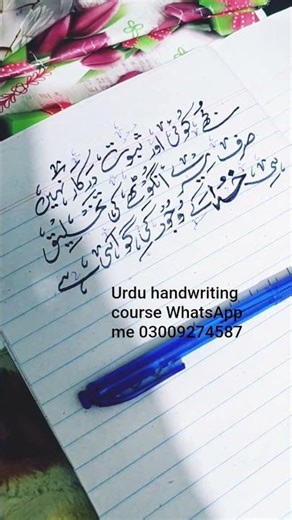 مجھے کوئی اور ثبوت درکار نہیں
صرف میرے انگوٹھے کی تخلیق
ہی خدا کے وجود کی گواہی ہے
Urdu handwriting
course WhatsApp
me 03009274587